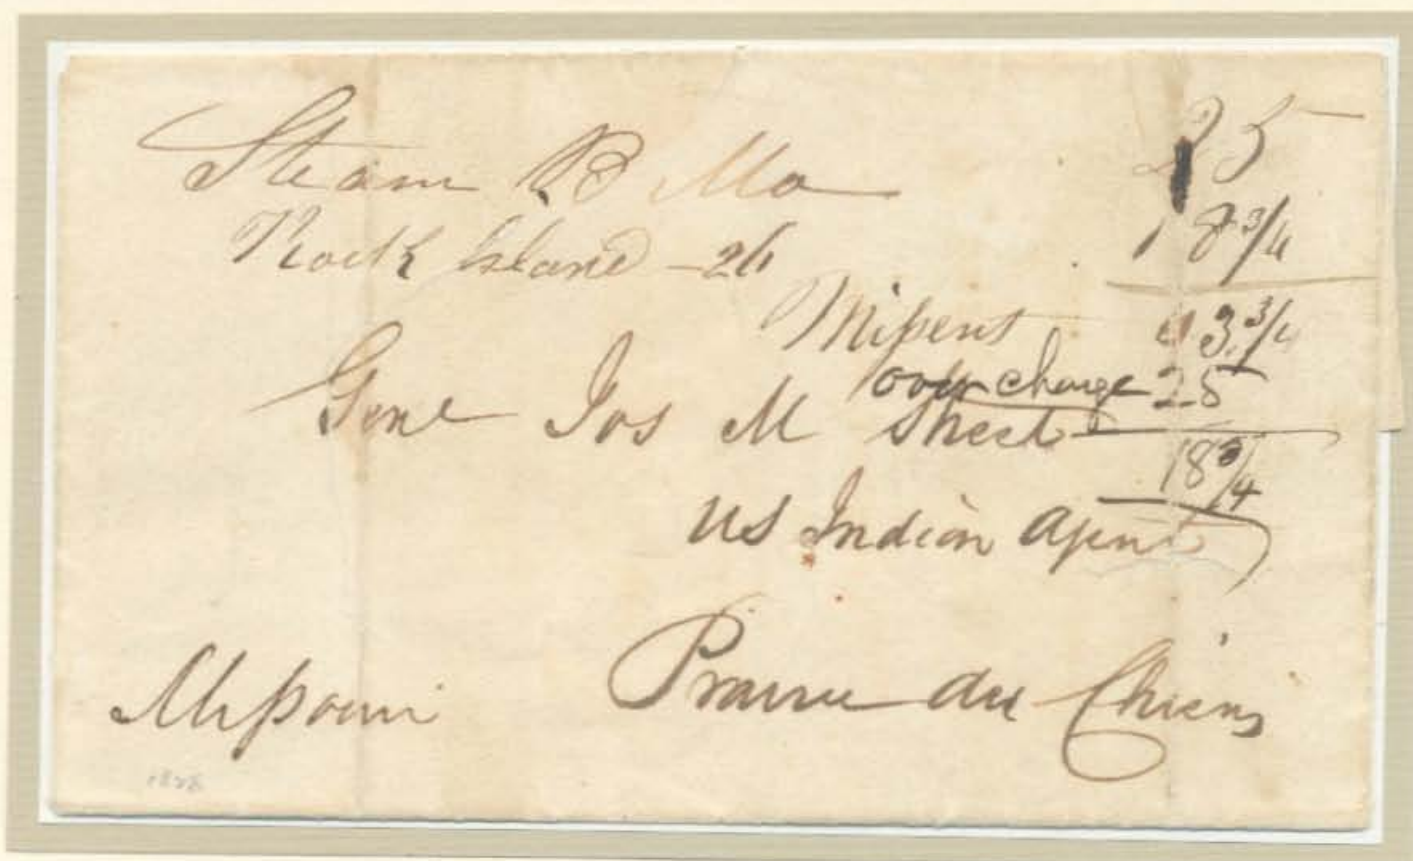 Steam B Mo
25
18 3/4
Rock Island - 26
Missent
43 3/4
over charge 25
Genl Jos M Street
18 3/4
US Indian Agent
Prairie du Chiens
Missouri
1828